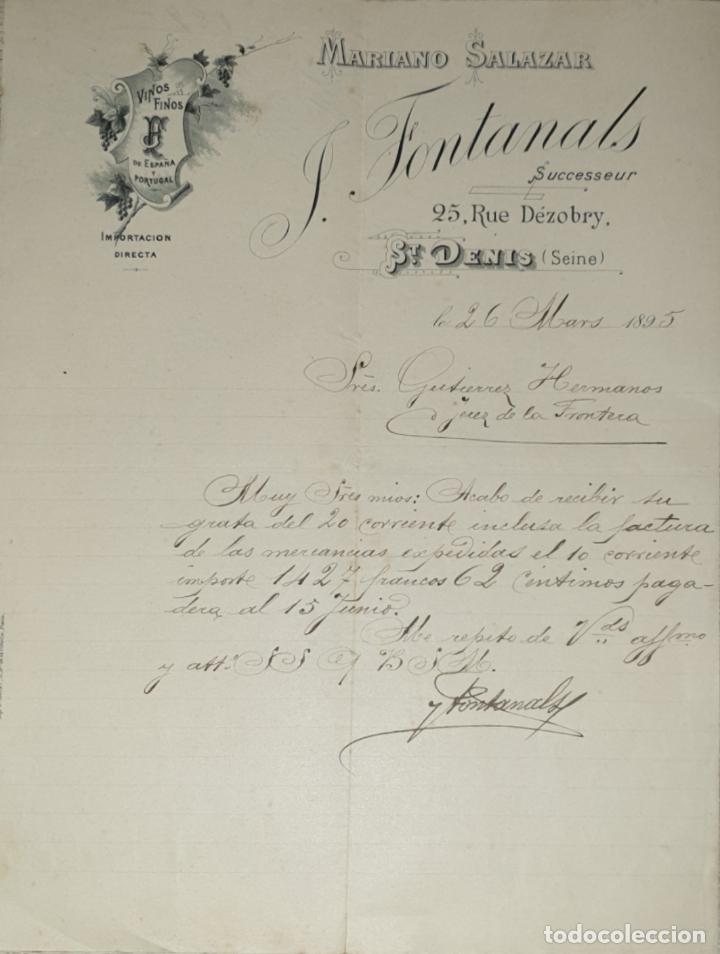 MARIANO SALAZAR
VINOS
FINOS
DE ESPAÑA
Y
PORTUGAL
IMPORTACION
DIRECTA
J. Fontanals
Successeur
25, Rue Dézobry,
ST DENIS (Seine)
le 26 Mars 1895
Srés. Gutierrez Hermanos
Jerez de la Frontera
Muy Srés mios: Acabo de recibir su
grata del 20 corriente inclusa la factura
de las mercancias expedidas el 10 corriente
importe 1427 francos 62 centimos paga-
dera al 15 Junio.
Me repito de Vds affmo
y atto S S q B S M.
J Fontanals
todocoleccion